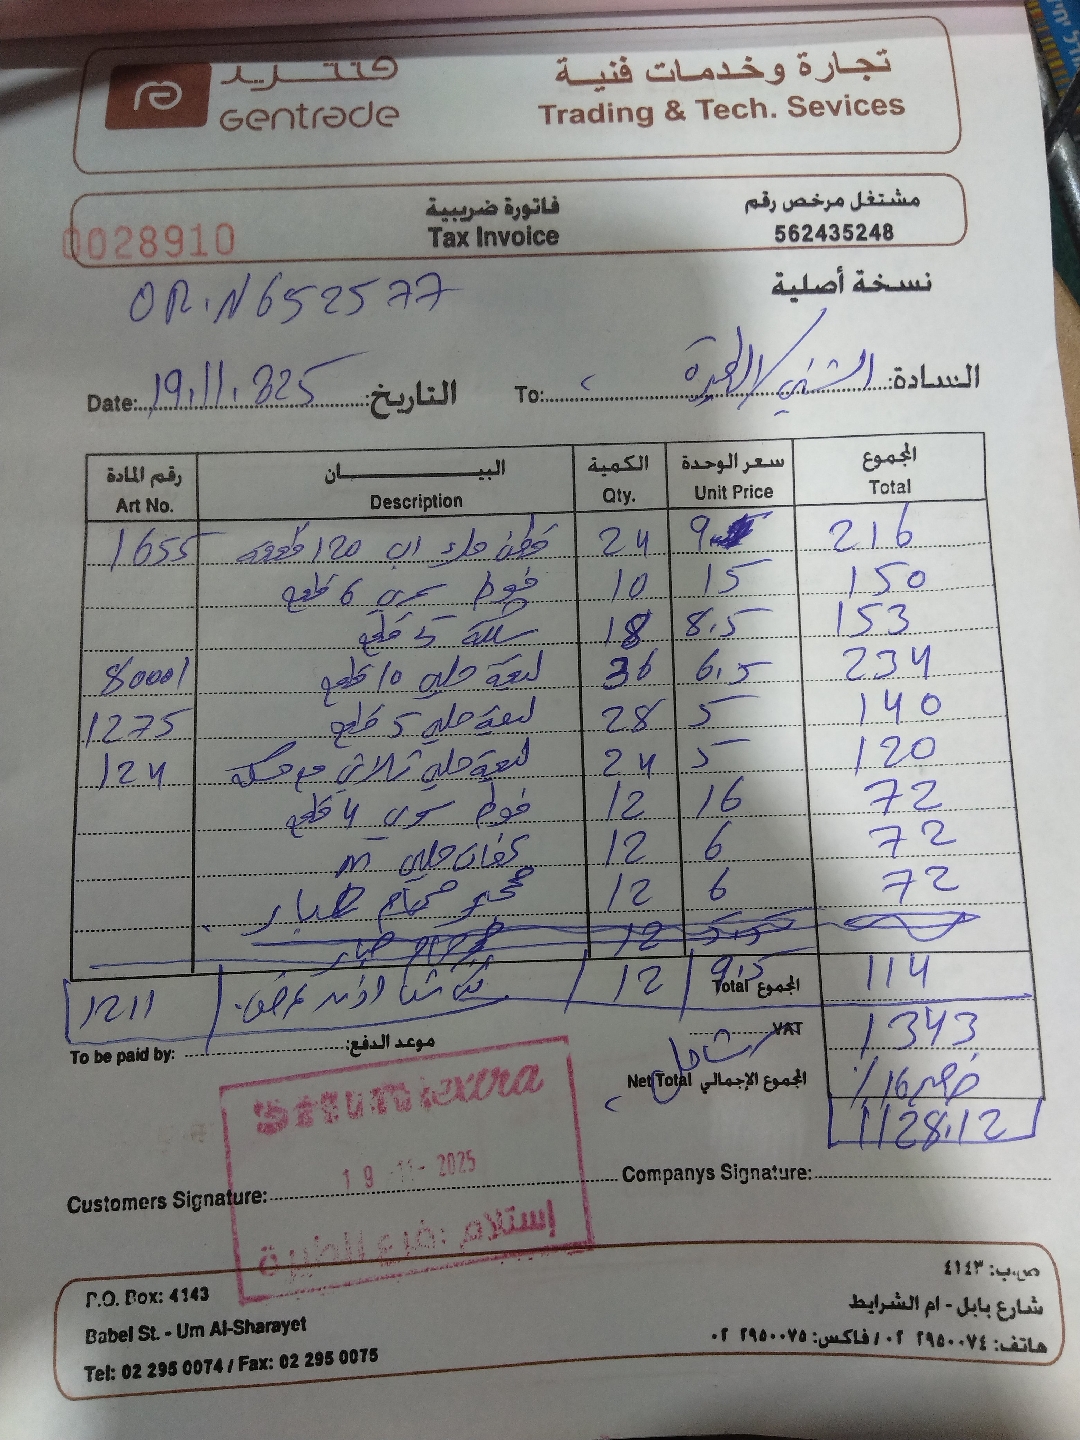 جنتريد
Gentrade
تجارة وخدمات فنية
Trading & Tech. Sevices
0028910
فاتورة ضريبية
Tax Invoice
مشتغل مرخص رقم
562435248
OR.N652577
نسخة أصلية
Date: 19.11.2025 التاريخ:
To: السادة: الشني / الطيرة
رقم المادة البيــــــــان الكمية سعر الوحدة المجموع
Art No. Description Qty. Unit Price Total
1655 120 قطعة 24 9 216
6 قطع 10 15 150
5 قطع 18 8.5 153
80001 ليفة جلي 10 قطع 36 6.5 234
1275 ليفة جلي 5 قطع 28 5 140
124 ليفة جلي ثلاثي مع مسكة 24 5 120
4 قطع 12 16 72
جلي m 12 6 72
حمام 12 6 72
12 5.5
1211 12 9.5 114
Total المجموع
VAT 1343
To be paid by: موعد الدفع:
شامل
Net Total المجموع الإجمالي
خصم 16 %
1128.12
extra
19-11-2025
إستلام :فرع الطيرة
Customers Signature: Companys Signature:
P.O. Box: 4143
Babel St. - Um Al-Sharayet
Tel: 02 295 0074 / Fax: 02 295 0075
ص.ب: ٤١٤٣
شارع بابل - ام الشرايط
هاتف: ٠٢ ٢٩٥٠٠٧٤ / فاكس: ٠٢ ٢٩٥٠٠٧٥